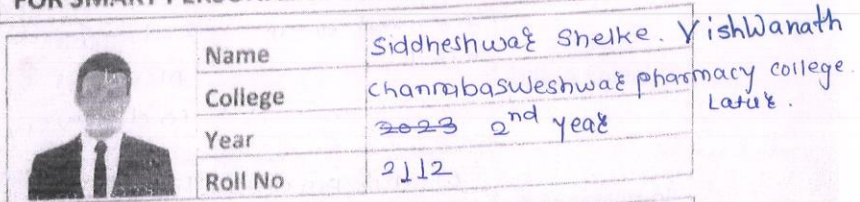 FOR SMART PERSON
Name Siddheshwar Shelke. VishWanath
College channabasweshwar pharmacy college.
Latur.
Year 2023 2nd year
Roll No 2112